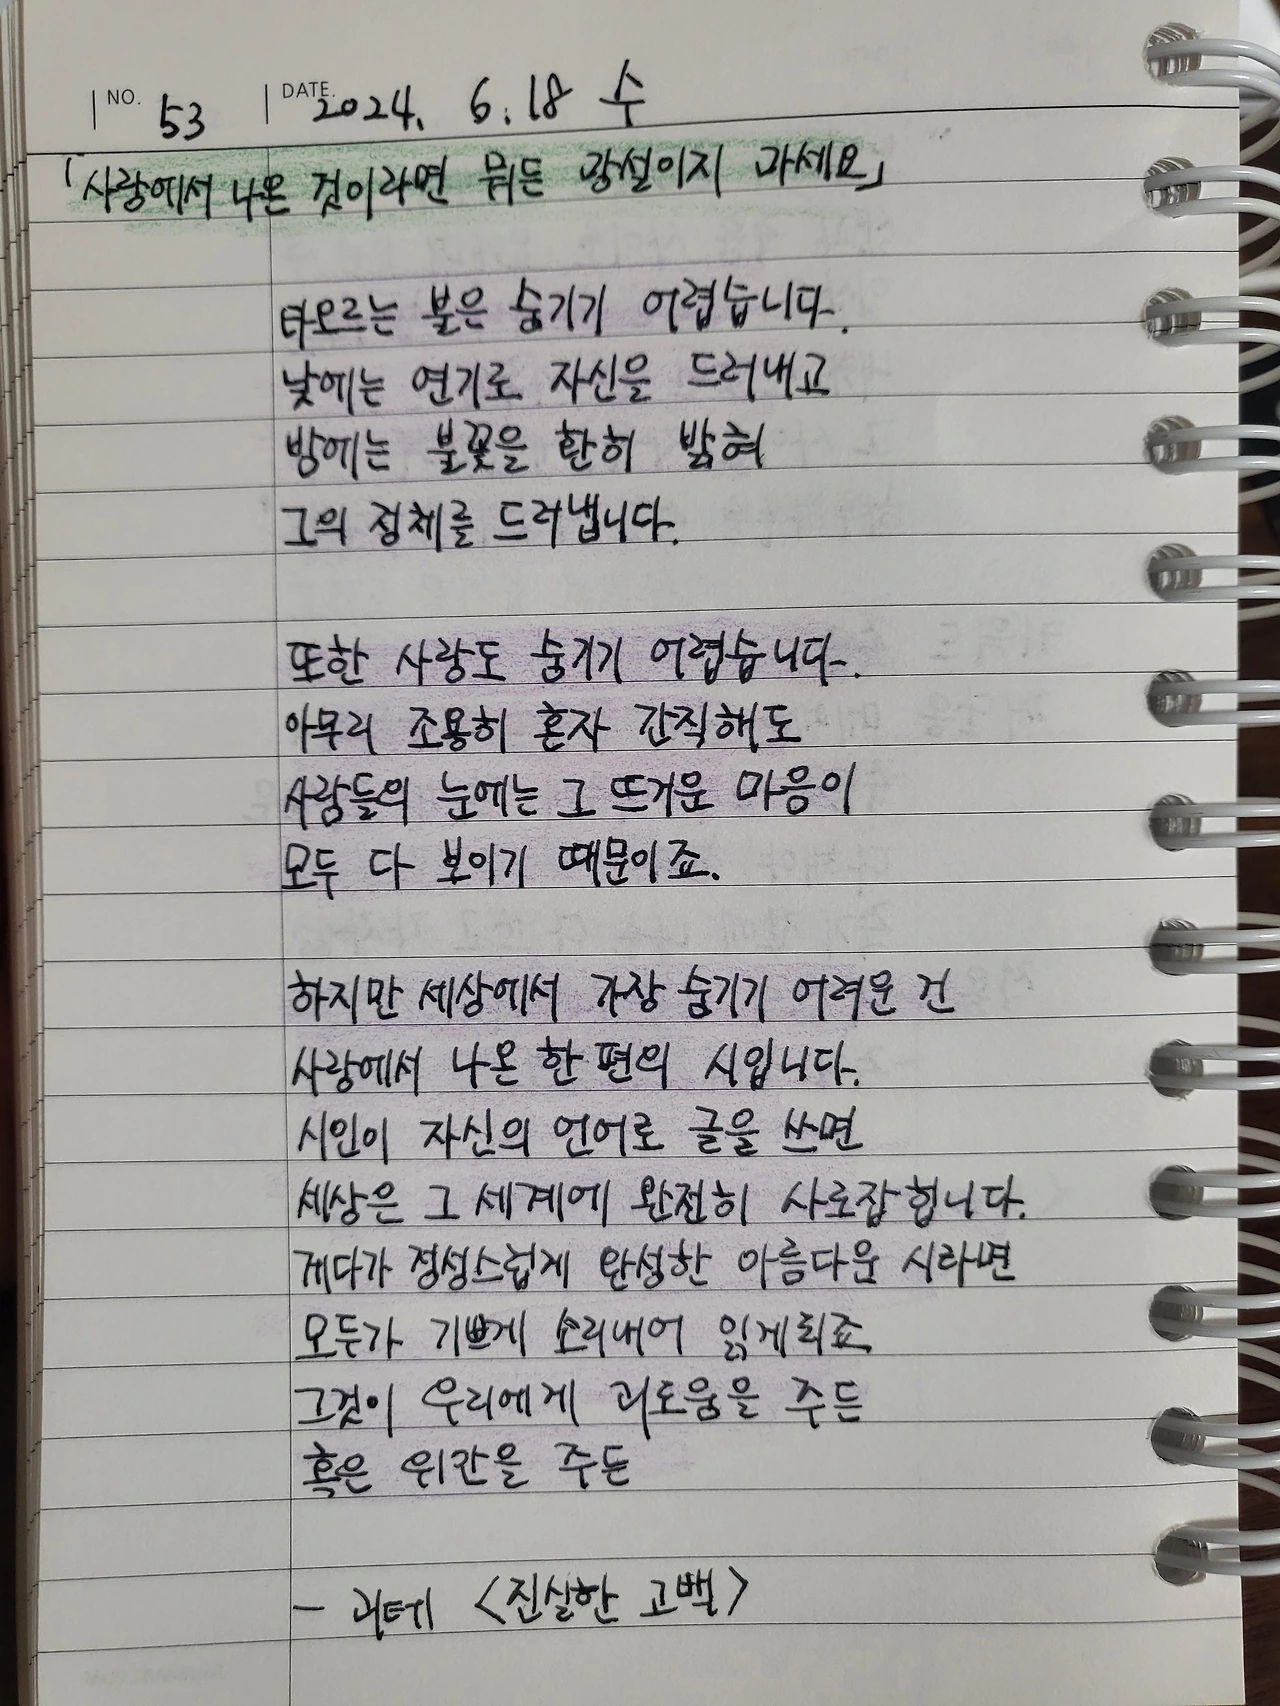 NO. 53 DATE. 2024. 6. 18 수
「사랑에서 나온 것이라면 뭐든 망설이지 마세요」
타오르는 불은 숨기기 어렵습니다.
낮에는 연기로 자신을 드러내고
밤에는 불꽃을 환히 밝혀
그의 정체를 드러냅니다.
또한 사랑도 숨기기 어렵습니다.
아무리 조용히 혼자 간직해도
사람들의 눈에는 그 뜨거운 마음이
모두 다 보이기 때문이죠.
하지만 세상에서 가장 숨기기 어려운 건
사랑에서 나온 한 편의 시입니다.
시인이 자신의 언어로 글을 쓰면
세상은 그 세계에 완전히 사로잡힙니다.
게다가 정성스럽게 완성한 아름다운 시라면
모두가 기쁘게 소리내어 읽게되죠
그것이 우리에게 괴로움을 주든
혹은 위안을 주든
- 괴테 <진실한 고백>